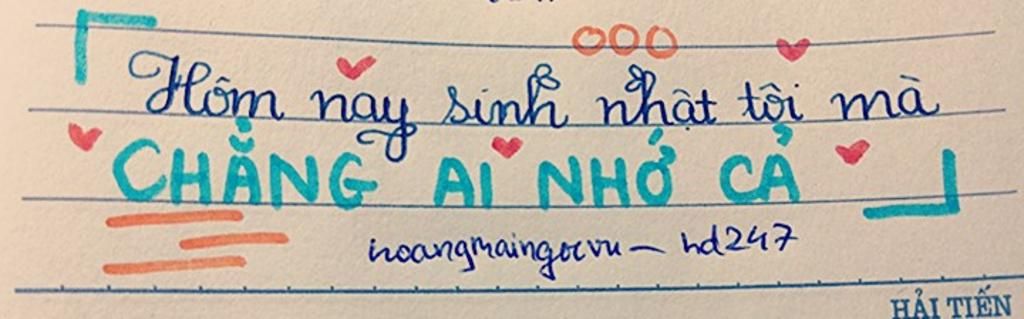 Hôm nay sinh nhật tôi mà
CHẲNG AI NHỚ CẢ
hoangmaingocvu — hd247
HẢI TIẾN